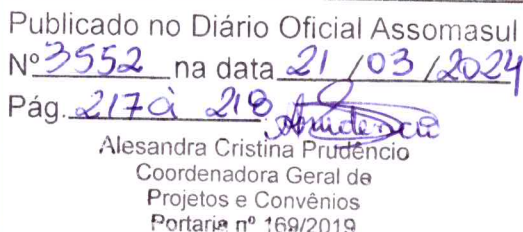 Publicado no Diário Oficial Assomasul
Nº 3552 na data 21 / 03 / 2024
Pág. 217 à 218
Alesandra Cristina Prudêncio
Coordenadora Geral de
Projetos e Convênios
Portaria nº 169/2019